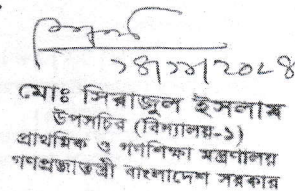 ১৪/১১/২০২৪
মোঃ সিরাজুল ইসলাম
উপসচিব (বিদ্যালয়-১)
প্রাথমিক ও গণশিক্ষা মন্ত্রণালয়
গণপ্রজাতন্ত্রী বাংলাদেশ সরকার